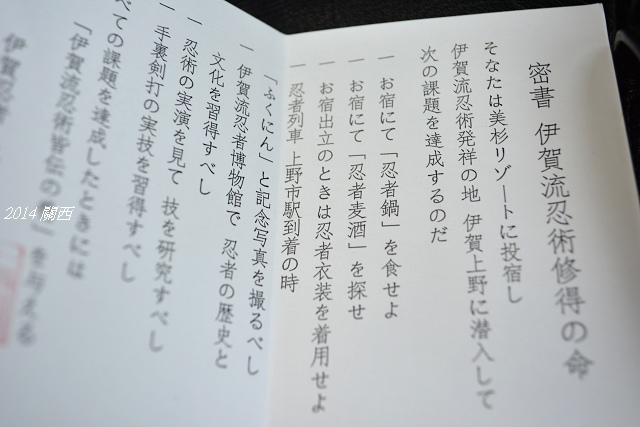 密書 伊賀流忍術修得の命
そなたは美杉リゾートに投宿し
伊賀流忍術発祥の地 伊賀上野に潜入して
次の課題を達成するのだ
一 お宿にて「忍者鍋」を食せよ
一 お宿にて「忍者麦酒」を探せ
一 お宿出立のときは忍者衣装を着用せよ
一 忍者列車 上野市駅到着の時
「ふくにん」と記念写真を撮るべし
一 伊賀流忍者博物館で 忍者の歴史と
文化を習得すべし
一 忍術の実演を見て 技を研究すべし
一 手裏剣打の実技を習得すべし
べての課題を達成したときには
「伊賀流忍術皆伝の」を与える
伊賀忍者
2014 關西